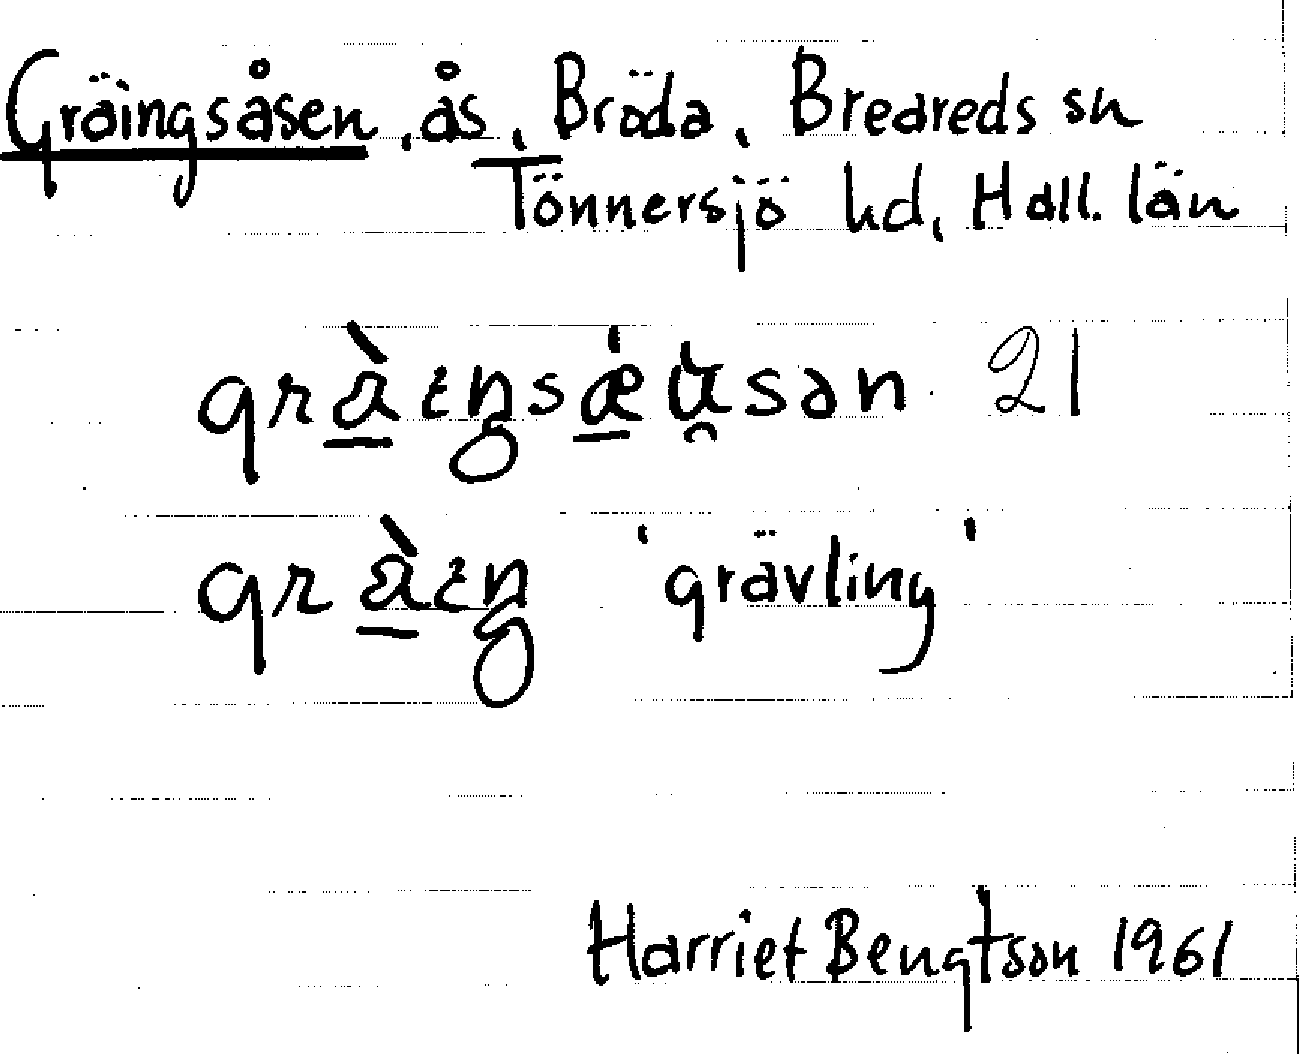 Gräingsåsen, ås, Bröda, Breareds sn
Tönnersjö hd, Hall. län
21
'grävling'
Harriet Bengtson 1961